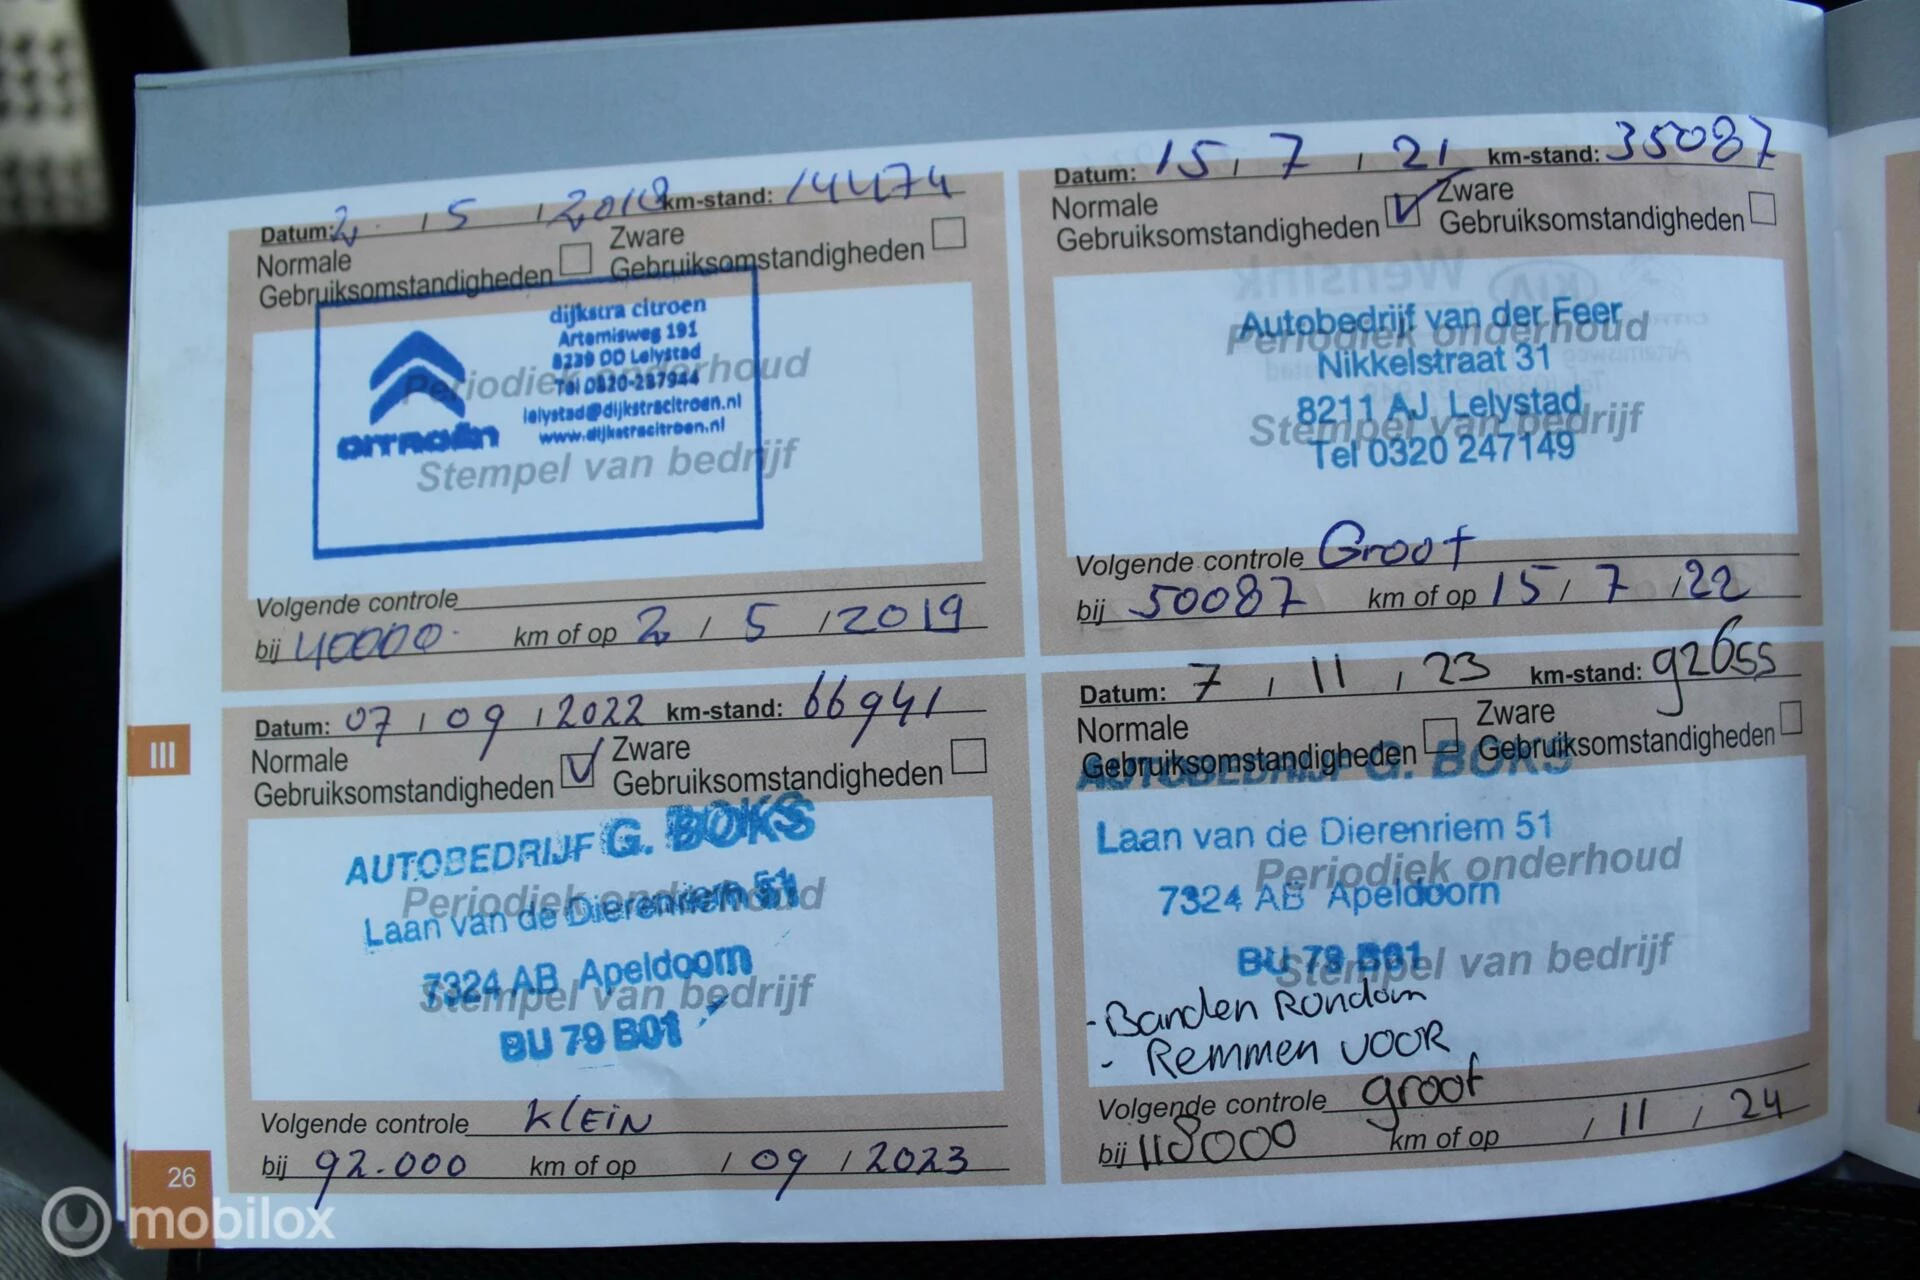 Datum: 2 / 5 / 2018 km-stand: 14474
Normale Gebruiksomstandigheden Zware Gebruiksomstandigheden
dijkstra citroen
Artemisweg 191
8239 DD Lelystad
Tel 0320-287944
lelystad@dijkstracitroen.nl
www.dijkstracitroen.nl
CITROËN
Periodiek onderhoud
Stempel van bedrijf
Volgende controle
bij 40000 km of op 2 / 5 / 2019
Datum: 15 / 7 / 21 km-stand: 35087
Normale Gebruiksomstandigheden Zware Gebruiksomstandigheden
Autobedrijf van der Feer
Periodiek onderhoud
Nikkelstraat 31
8211 AJ Lelystad
Stempel van bedrijf
Tel 0320 247149
Volgende controle Groot
bij 50087 km of op 15 / 7 / 22
Datum: 07 / 09 / 2022 km-stand: 66941
Normale Gebruiksomstandigheden Zware Gebruiksomstandigheden
AUTOBEDRIJF G. BOKS
Periodiek onderhoud
Laan van de Dierenriem 51
7324 AB Apeldoorn
Stempel van bedrijf
BU 79 B01
Volgende controle KLEIN
bij 92.000 km of op / 09 / 2023
Datum: 7 / 11 / 23 km-stand: 92655
Normale Gebruiksomstandigheden Zware Gebruiksomstandigheden
AUTOBEDRIJF G. BOKS
Laan van de Dierenriem 51
Periodiek onderhoud
7324 AB Apeldoorn
BU 79 B01
Stempel van bedrijf
- Banden Rondom
- REMMEN VOOR
Volgende controle groot
bij 118000 km of op / 11 / 24
III
26
mobilox